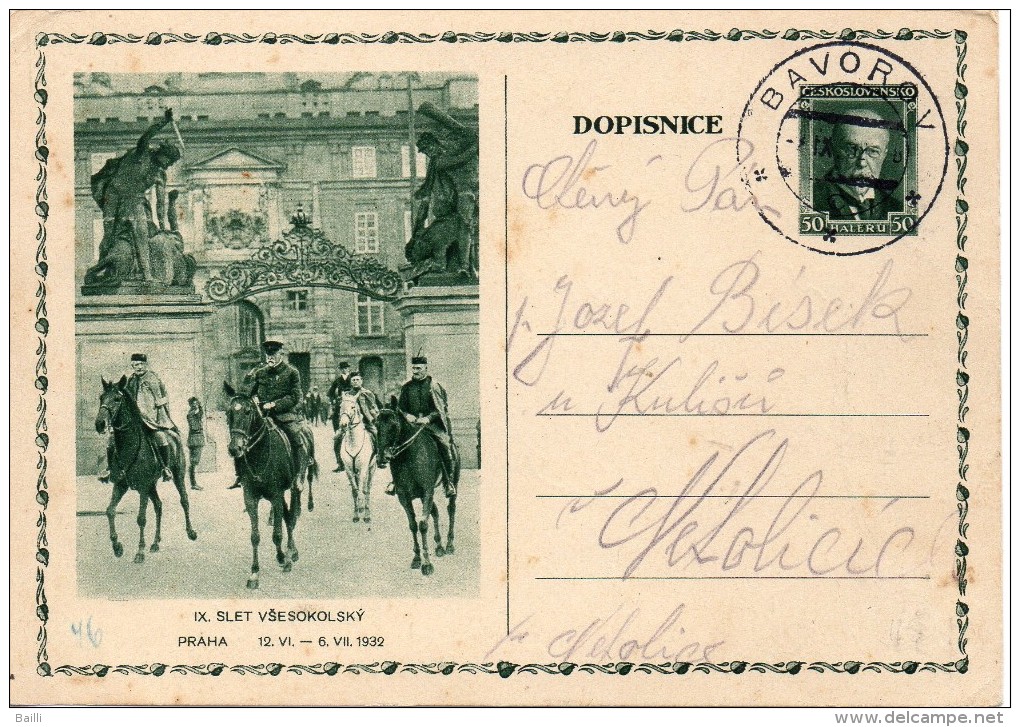 DOPISNICE
BAVOROV
ČESKOSLOVENSKO
50 HALÉŘŮ 50
Ctěný Pan
p. Jozef Bísek
u Kulišů
v Netolicíc
p. Netolice
IX. SLET VŠESOKOLSKÝ
PRAHA 12. VI. — 6. VII. 1932
46
Bailli
delcampe.net